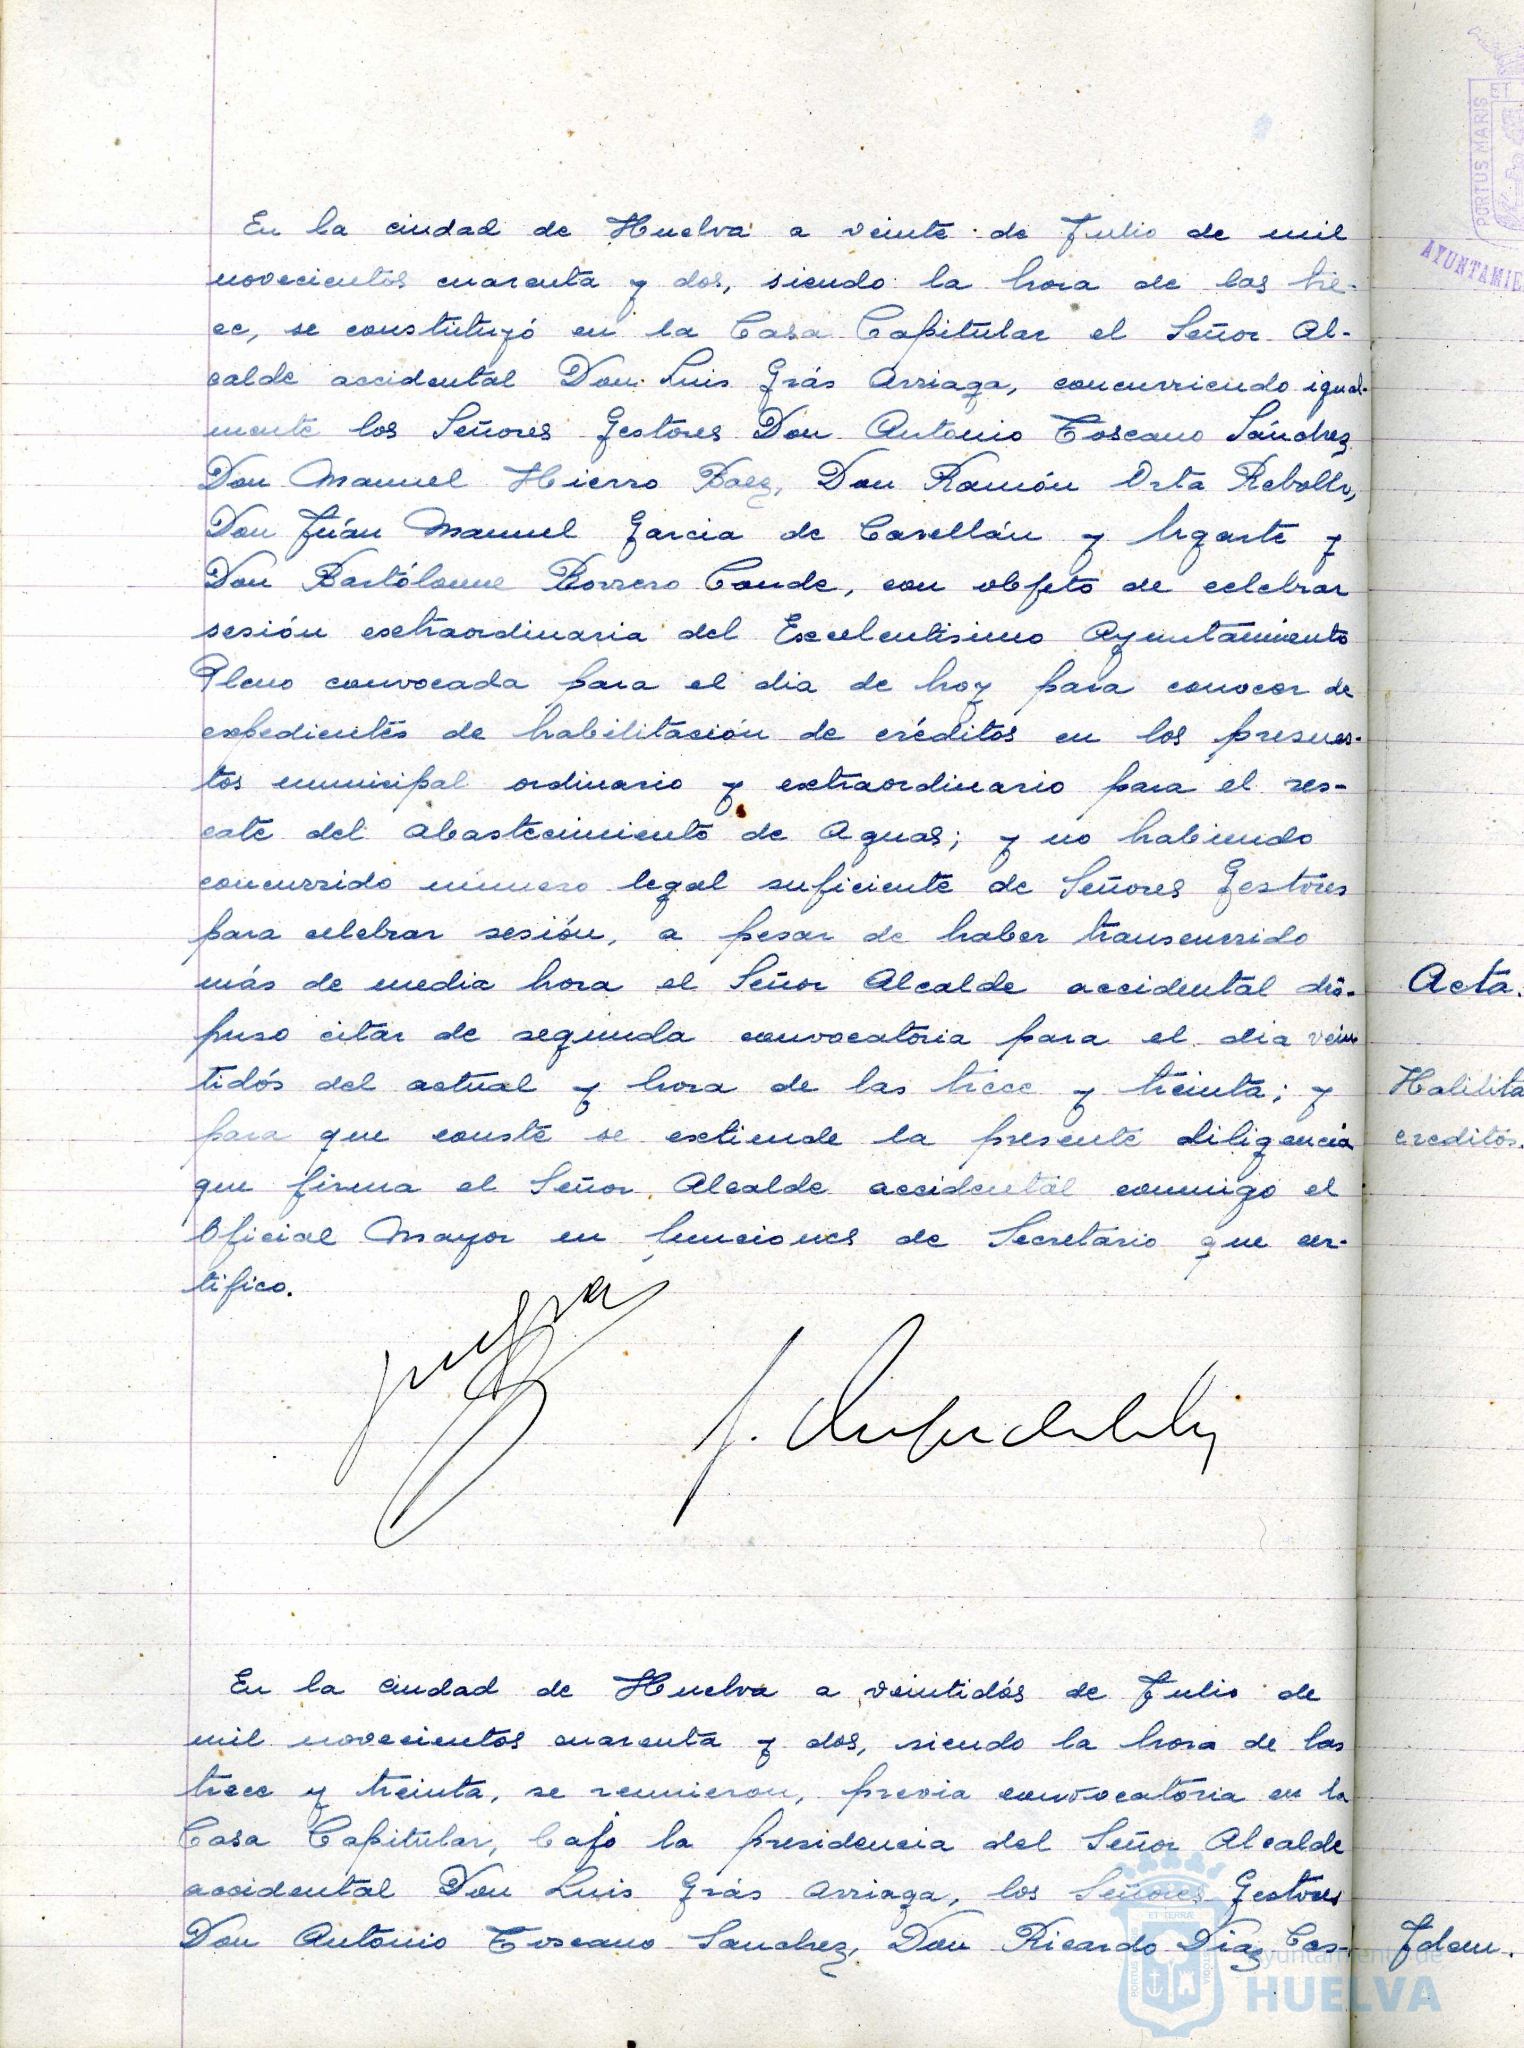 En la ciudad de Huelva a veinte de Julio de mil
novecientos cuarenta y dos, siendo la hora de las tre-
ce, se constituyó en la Casa Capitular el Señor Al-
calde accidental Don Luis Grás Arriaga, concurriendo igual-
mente los Señores Gestores Don Antonio Toscano Sánchez
Don Manuel Hierro Baez, Don Ramón Orta Rebollo,
Don Juán Manuel Garcia de Cavellán y Ugarte y
Don Bartólome Borrero Conde, con objeto de celebrar
sesión extraordinaria del Excelentisimo Ayuntamiento
Pleno convocada para el dia de hoy para conocer de
expedientes de habilitación de créditos en los presues-
tos municipal ordinario y extraordinario para el res-
cate del abastecimiento de Aguas; y no habiendo
concurrido número legal suficiente de Señores Gestores
para celebrar sesión, a pesar de haber transcurrido
más de media hora el Señor Alcalde accidental dis-
puso citar de segunda convocatoria para el dia vein
tidós del actual y hora de las trece y treinta; y
para que conste se extiende la presente diligencia
que firma el Señor Alcalde accidental conmigo el
Oficial Mayor en funciones de Secretario que cer-
tifico.
En la ciudad de Huelva a veintidós de Julio de
mil novecientos cuarenta y dos, siendo la hora de las
trece y treinta, se reunieron, previa convocatoria en la
Casa Capitular, bajo la presidencia del Señor Alcalde
accidental Don Luis Grás Arriaga, los Señores Gestores
Don Antonio Toscano Sanchez, Don Ricardo Diaz Cas-
PORTUS MARIS
ET
AYUNTAMIE
Acta.
Habilita
creditos.
Idem.
ET TERRÆ
PORTUS MARIS
CUSTODIA
Ayuntamiento de
HUELVA